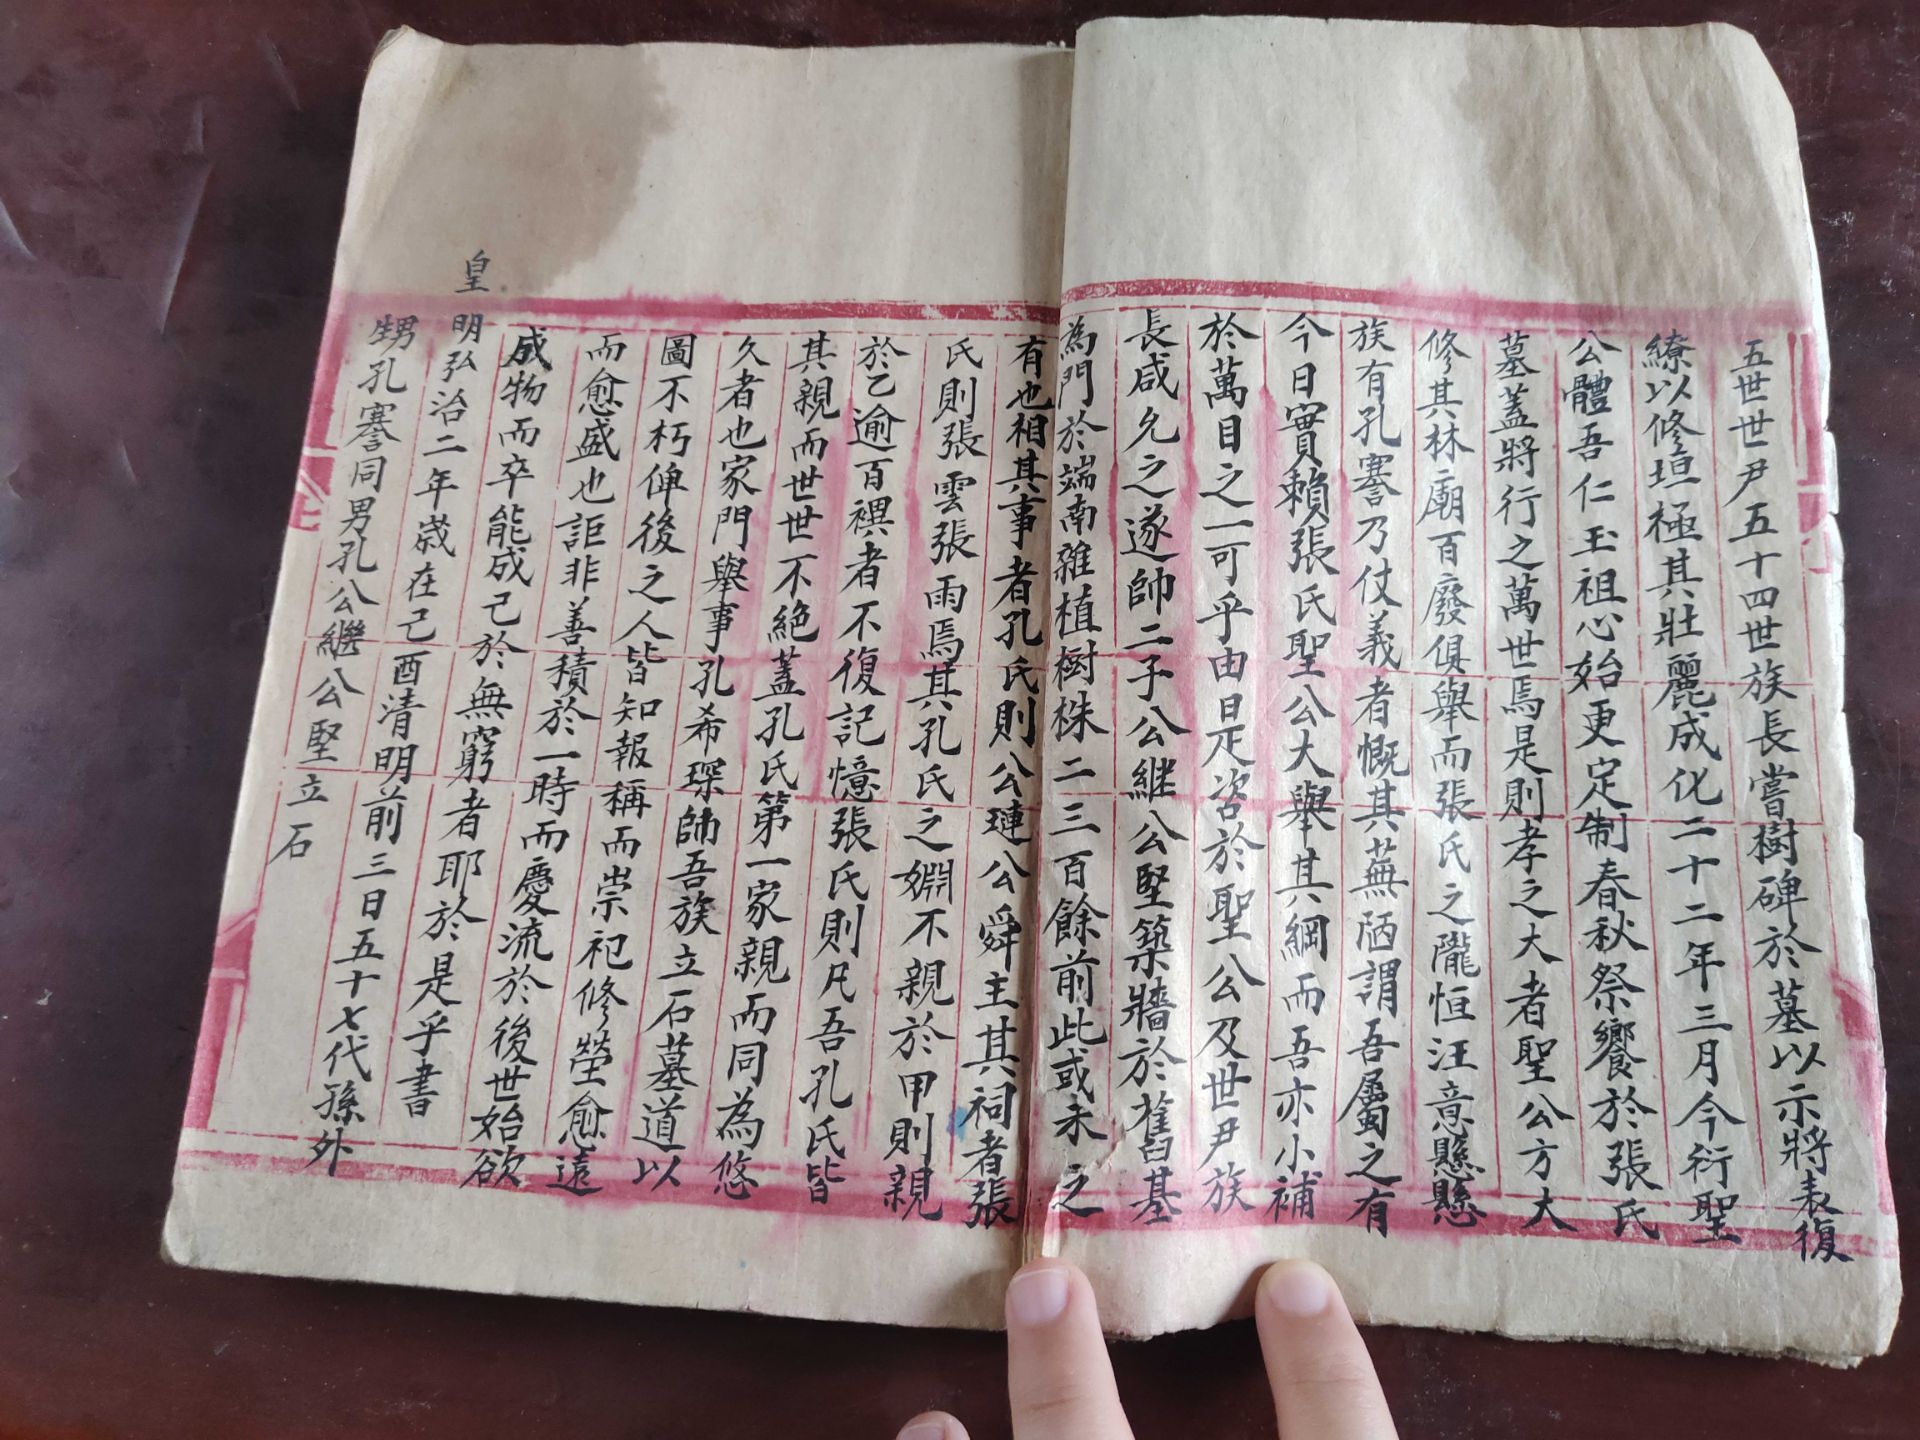 五世世尹五十四世族長嘗樹碑於墓以示將表復
繚以修垣極其壯麗成化二十二年三月今衍聖
公體吾仁玉祖心始更定制春秋祭饗於張氏
墓蓋將行之萬世焉是則孝之大者聖公方大
修其林廟百廢俱舉而張氏之隴恒汪意懸懸
族有孔謇乃仗義者慨其蕪陋謂吾屬之有
今日實賴張氏聖公大舉其綱而吾亦小補
於萬目之一可乎由是咨於聖公及世尹族
長咸允之遂帥二子公繼公堅築牆於舊基
為門於端南雜植樹株二三百餘前此或未之
有也相其事者孔氏則公璉公舜主其祠者張
氏則張雲張雨焉其孔氏之婣不親於甲則親
於乙逾百禩者不復記憶張氏則凡吾孔氏皆
其親而世世不絕蓋孔氏第一家親而同為悠
久者也家門舉事孔希琛師吾族立石墓道以
圖不朽俾後之人皆知報稱而崇祀修塋愈遠
而愈盛也詎非善積於一時而慶流於後世始欲
成物而卒能成己於無窮者耶於是乎書
皇
明弘治二年歲在己酉清明前三日五十七代孫外
甥孔謇同男孔公繼公堅立石